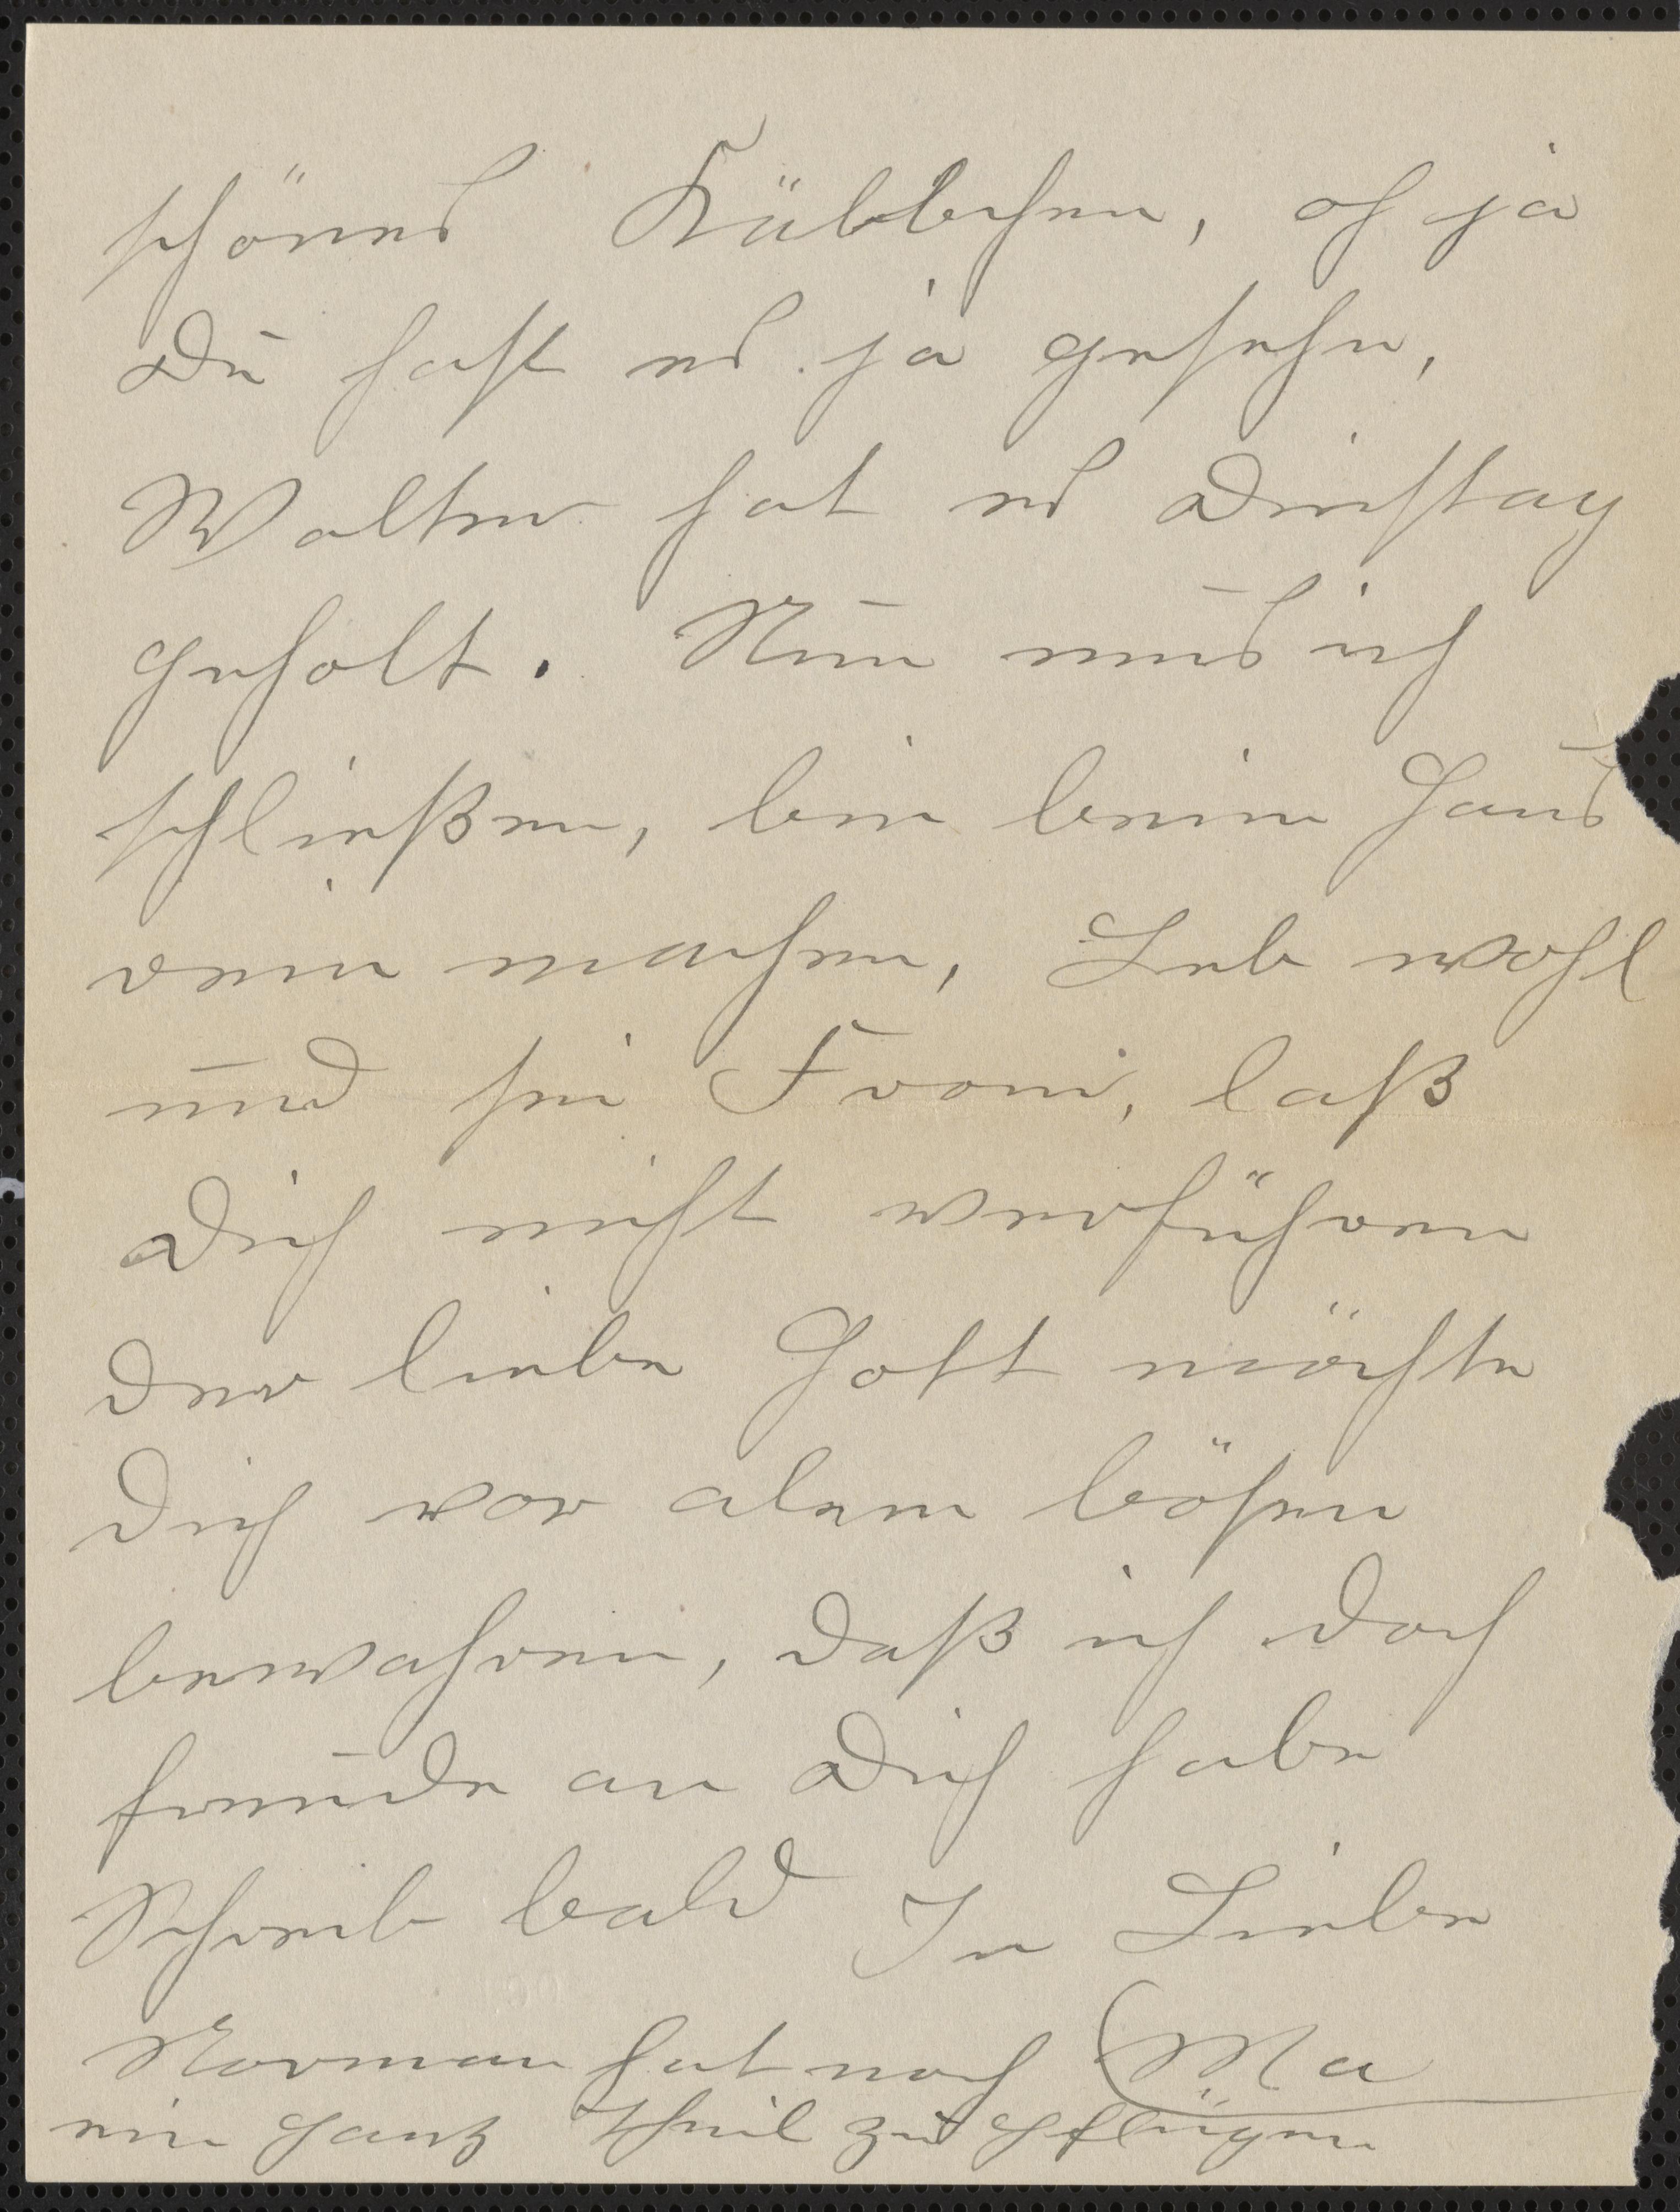 schönes Kälbchen, oh ja
Du hast es ja gesehn,
Walter hat es Dinstag
geholt. Nun mus ich
schließen, bin beim Haus
rein machen, Leb wohl
und sei From, laß
Dich nicht verführen
der liebe Gott möchte
Dich vor alem bösen
bewahren, daß ich doch
freude an Dich habe
Schreib bald In Liebe
Norman hat noch Ma
ein ganz Theil zu pflügen